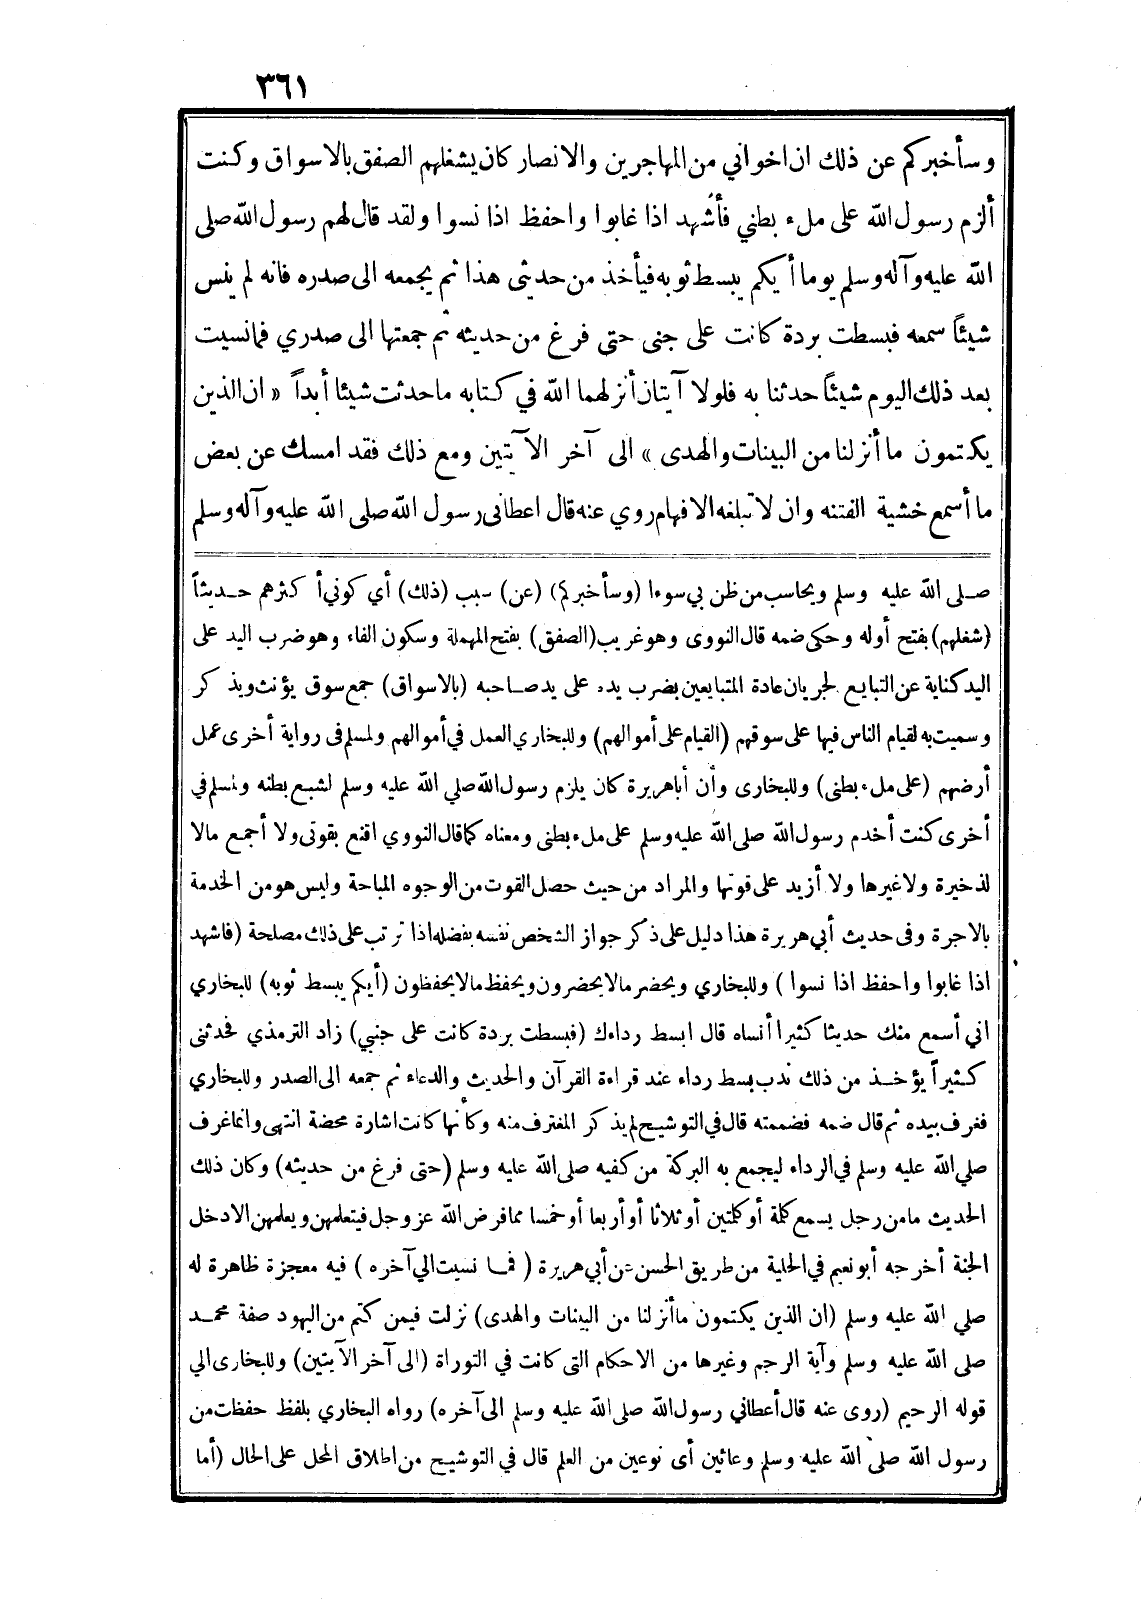 ٣٦١
وسأخبركم عن ذلك ان اخواني من المهاجرين والانصار كان يشغلهم الصفق بالاسواق وكنت
ألزم رسول الله على ملء بطني فأشهد اذا غابوا واحفظ اذا نسوا ولقد قال لهم رسول الله صلى
الله عليه وآله وسلم يوما أيكم يبسط ثوبه فيأخذ من حديثى هذا ثم يجمعه الى صدره فانه لم ينس
شيئاً سمعه فبسطت بردة كانت على جنبى حتى فرغ من حديثه ثم جمعتها الى صدري فمانسيت
بعد ذلك اليوم شيئاً حدثنا به فلولا آيتان أنزلهما الله في كتابه ماحدثت شيئا أبداً « ان الذين
يكتمون ما أنزلنا من البينات والهدى » الى آخر الآيتين ومع ذلك فقد امسك عن بعض
ما أسمع خشية الفتنه وان لا تبلغه الافهام روي عنه قال اعطانى رسول الله صلى الله عليه وآله وسلم
صلى الله عليه وسلم ويحاسب من ظن بي سوءا (وسأخبركم) (عن) سبب (ذلك) أي كوني أكثرهم حديثاً
(شغلهم) بفتح أوله وحكى ضمه قال النووى وهو غريب (الصفق) بفتح المهملة وسكون الفاء وهو ضرب اليد على
اليد كناية عن التبايع لجريان عادة المتبايعين بضرب يده على يد صاحبه (بالاسواق) جمع سوق يؤنث ويذكر
وسميت به لقيام الناس فيها على سوقهم (القيام على أموالهم) وللبخاري العمل في أموالهم ولمسلم فى رواية أخرى عمل
أرضهم (على ملء بطنى) وللبخارى وأن أباهريرة كان يلزم رسول الله صلي الله عليه وسلم لشبع بطنه ولمسلم في
أخرى كنت أخدم رسول الله صلى الله عليه وسلم على ملء بطنى ومعناه كما قال النووي اقنع بقوتى ولا أجمع مالا
لذخيرة ولا غيرها ولا أزيد على قوتها والمراد من حيث حصل القوت من الوجوه المباحة وليس هو من الخدمة
بالاجرة وفى حديث أبي هريرة هذا دليل على ذكر جواز الشخص نفسه بفضله اذا ترتب على ذلك مصلحة (فاشهد
اذا غابوا واحفظ اذا نسوا) وللبخاري ويحضر مالا يحضرون ويحفظ مالا يحفظون (أيكم يبسط ثوبه) للبخاري
اني أسمع منك حديثا كثيرا أنساه قال ابسط رداءك (فبسطت بردة كانت على جنبي) زاد الترمذي فحدثنى
كثيراً يؤخذ من ذلك ندب بسط رداء عند قراءة القرآن والحديث والدعاء ثم جمعه الى الصدر وللبخاري
فغرف بيده ثم قال ضمه فضممته قال في التوشيح لم يذكر المغترف منه وكأنها كانت اشارة محضة انتهى وانما غرف
صلي الله عليه وسلم في الرداء ليجمع به البركة من كفيه صلى الله عليه وسلم (حتى فرغ من حديثه) وكان ذلك
الحديث مامن رجل يسمع كلمة أو كلمتين أو ثلاثا أو أربعا أو خمسا مما فرض الله عز وجل فيتعلمهن ويعلمهن الادخل
الجنة أخرجه أبو نعيم في الحلية من طريق الحسن عن أبي هريرة (فما نسيت الي آخره) فيه معجزة ظاهرة له
صلي الله عليه وسلم (ان الذين يكتمون ما أنزلنا من البينات والهدى) نزلت فيمن كتم من اليهود صفة محمد
صلى الله عليه وسلم وآية الرجم وغيرها من الاحكام التى كانت في التوراة (الى آخر الآيتين) وللبخارى الي
قوله الرحيم (روى عنه قال أعطاني رسول الله صلى الله عليه وسلم الى آخره) رواه البخاري بلفظ حفظت من
رسول الله صلى الله عليه وسلم وعائين أى نوعين من العلم قال في التوشيح من اطلاق المحل على الحال (أما